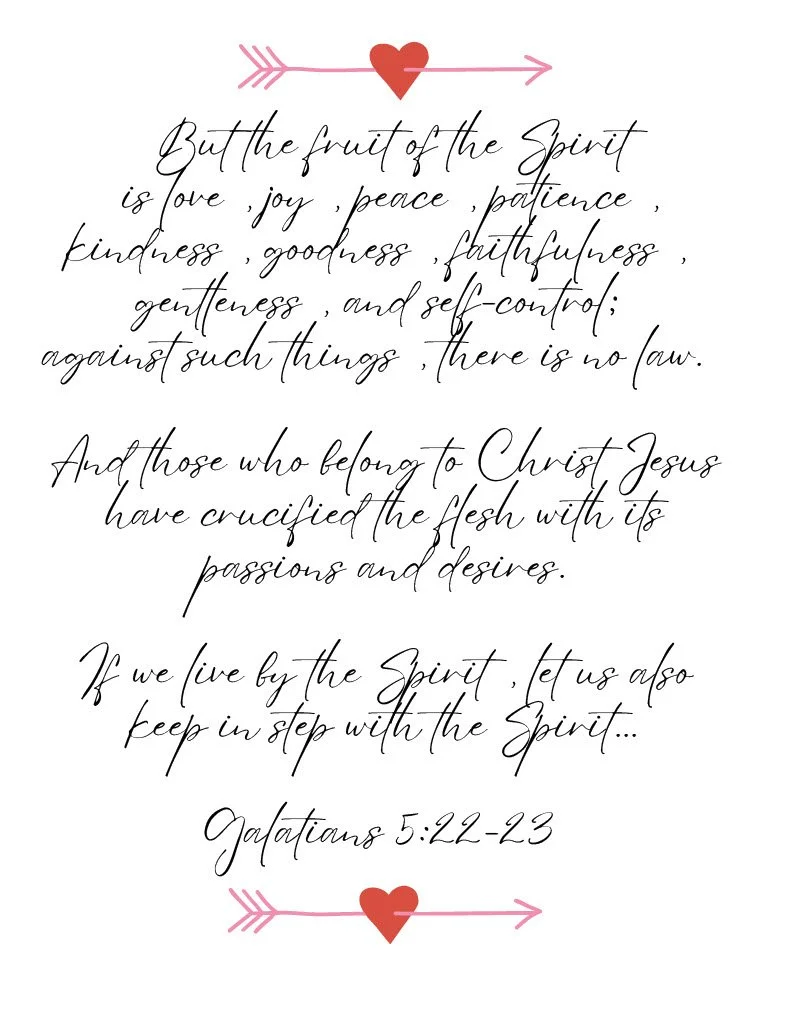 But the fruit of the Spirit
is love , joy , peace , patience ,
kindness , goodness , faithfulness ,
gentleness , and self-control;
against such things , there is no law.
And those who belong to Christ Jesus
have crucified the flesh with its
passions and desires.
If we live by the Spirit , let us also
keep in step with the Spirit...
Galatians 5:22-23